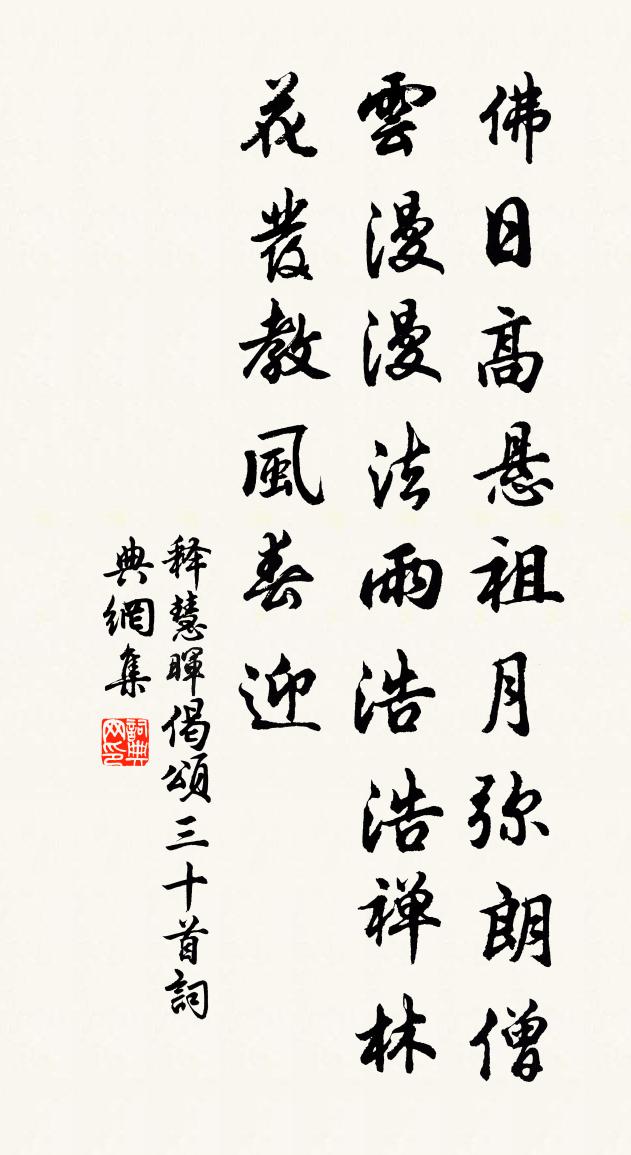 佛日高悬祖月弥朗僧
雲漫漫法雨浩浩禅林
花發教風春迎
释慧暉偈頌三十首詞
典網集
詞典网印